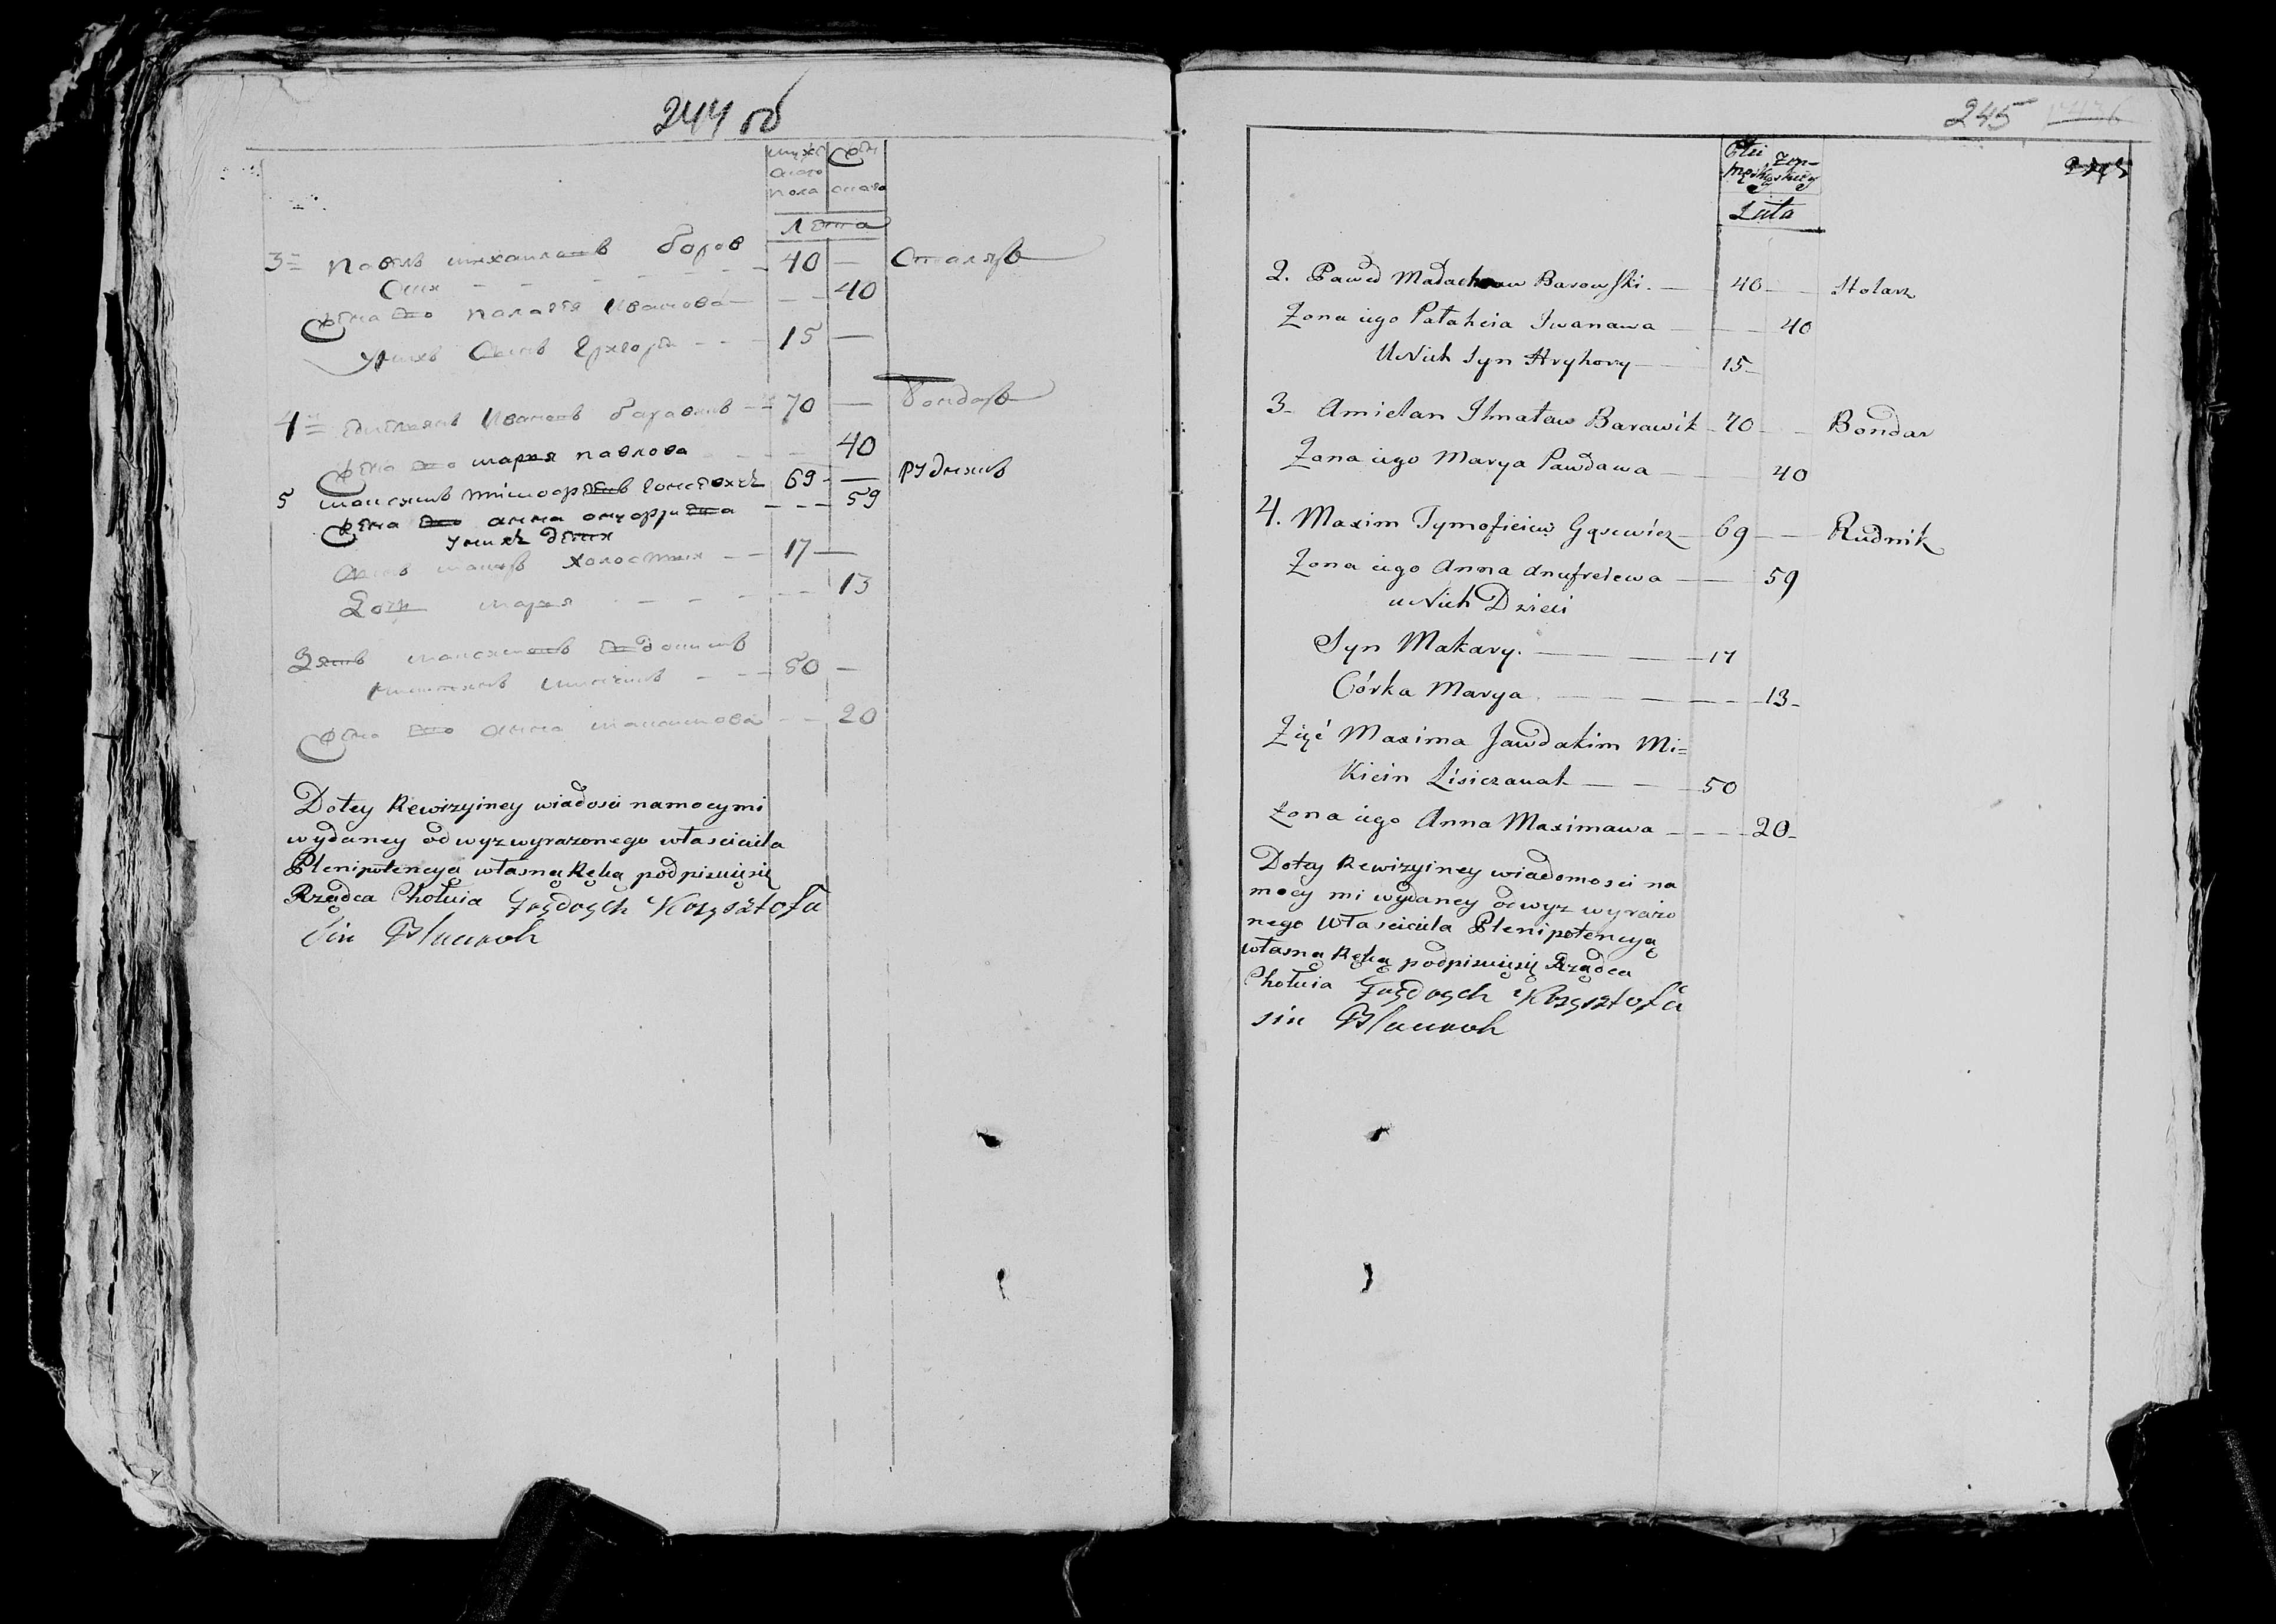 244 об
мужс Жен
скаго
пола скаго
Лета
3 Павелъ Михаиловъ Боров 40 — Столяръ
ских
Жена его Палагея Иванова 40
У них Сынъ Григорей 15 —
4 Емельянъ Ивановъ Баравикъ 70 — Бондаръ
Жена его Марья Павлова 40
5 Максимъ Тимофеевъ 69 — Рудникъ
Жена его Анна Онуфриева 59
У них дети
Сынъ Макаръ Холостых 17 —
Дочь Марья 13
Зять Максимовъ Евдокимъ
50 —
Жена его Анна Максимова 20
Dotey Rewizyiney wiadosci namocy mi
wydaney odwyzwyrazonego własciciela
Plenipotencyą własną Ręką podpisuięsię
Rządca Chołuia Krzysztofa
sin
245
Płci Zen-
męskiey skiey
Lata
2. Paweł Małachow Barowski. 40 Stolarz
Zona iego Patahcia Iwanawa 40
U Nich Syn Hryhory 15
3 Amielan Ihnatow Barawik 70 Bondar
Zona iego Marya Pawława 40
4. Maxim Tymofieiew Gąsewicz 69 Rudnik
Zona iego Anna Anufreiewa 59
u Nich Dzieci
Syn Makary. 17
Córka Marya 13
Zięć Maxima Jawdakim Mi=
kicin Lisiczanak 50
Zona iego Anna Maximawa 20
Dotey Rewizyiney wiadomosci na
mocy mi wydaney odwyz wyrażo
nego Własciciela Plenipotencyą
własną Ręką podpisuięsię Rządca
Chołuia Krzysztofa
sin